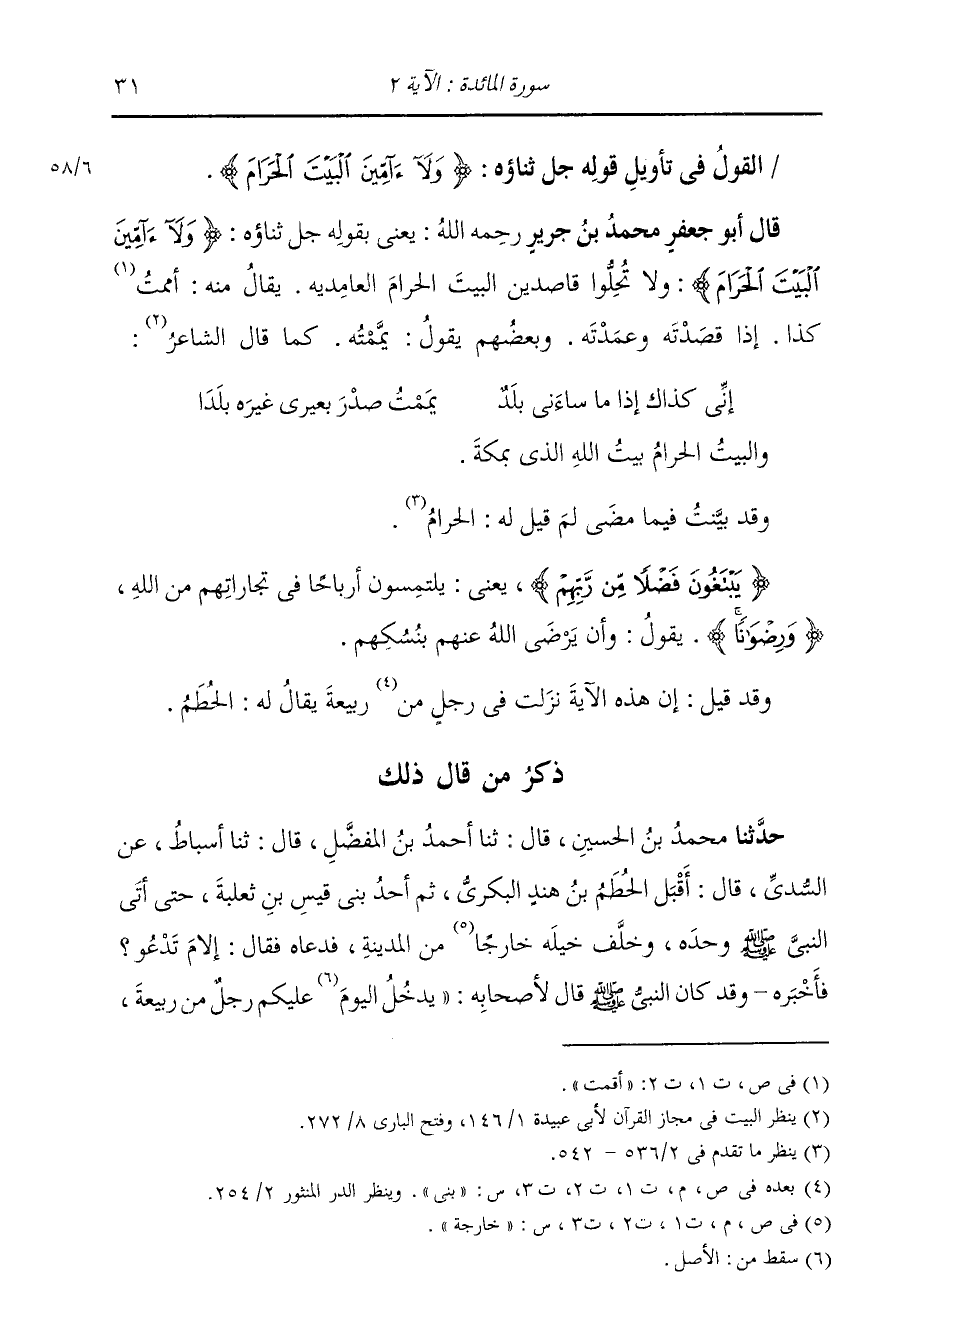 سورة المائدة : الآية ٢
٣١
/ القولُ فى تأويلِ قولِه جل ثناؤه : ﴿ وَلَآ ءَآمِّينَ ٱلْبَيْتَ ٱلْحَرَامَ ﴾ .
٥٨/٦
قال أبو جعفرٍ محمدُ بنُ جريرٍ رحِمه اللهُ : يعنى بقولِه جل ثناؤه : ﴿ وَلَآ ءَآمِّينَ
ٱلْبَيْتَ ٱلْحَرَامَ ﴾ : ولا تُحِلُّوا قاصدين البيتَ الحرامَ العامِديه . يقالُ منه : أممتُ(١)
كذا . إذا قصَدْتَه وعمَدْتَه . وبعضُهم يقولُ : يمَّمْتُه . كما قال الشاعرُ(٢) :
إنِّى كذاك إذا ما ساءَنى بلَدٌ يمَمْتُ صدْرَ بعيرى غيرَه بلَدَا
والبيتُ الحرامُ بيتُ اللهِ الذى بمكةَ .
وقد بيَّنتُ فيما مضَى لمَ قيل له : الحرامُ(٣) .
﴿ يَبْتَغُونَ فَضْلًا مِّن رَّبِّهِمْ ﴾ ، يعنى : يلتمِسون أرباحًا فى تجاراتِهم من اللهِ ،
﴿ وَرِضْوَٰنًاۚ ﴾ . يقولُ : وأن يَرْضَى اللهُ عنهم بنُسُكِهم .
وقد قيل : إن هذه الآيةَ نزَلت فى رجلٍ من(٤) ربيعةَ يقالُ له : الحُطَمُ .
ذكرُ من قال ذلك
حدَّثنا محمدُ بنُ الحسينِ ، قال : ثنا أحمدُ بنُ المفضَّلِ ، قال : ثنا أسباطُ ، عن
السُّدىِّ ، قال : أَقْبَل الحُطَمُ بنُ هندٍ البكرىُّ ، ثم أحدُ بنى قيسِ بنِ ثعلبةَ ، حتى أتَى
النبىَّ ﷺ وحدَه ، وخلَّف خيلَه خارجًا(٥) من المدينةِ ، فدعاه فقال : إلامَ تَدْعُو ؟
فأَخْبَره – وقد كان النبىُّ ﷺ قال لأصحابِه : « يدخُلُ اليومَ(٦) عليكم رجلٌ من ربيعةَ ،
(١) فى ص ، ت ١، ت ٢: « أقمت » .
(٢) ينظر البيت فى مجاز القرآن لأبى عبيدة ١/ ١٤٦، وفتح البارى ٨/ ٢٧٢.
(٣) ينظر ما تقدم فى ٥٣٦/٢ – ٥٤٢.
(٤) بعده فى ص، م، ت ١، ت ٢، ت ٣، س : « بنى » . وينظر الدر المنثور ٢/ ٢٥٤.
(٥) فى ص ، م ، ت١ ، ت٢ ، ت٣ ، س : « خارجة » .
(٦) سقط من : الأصل .